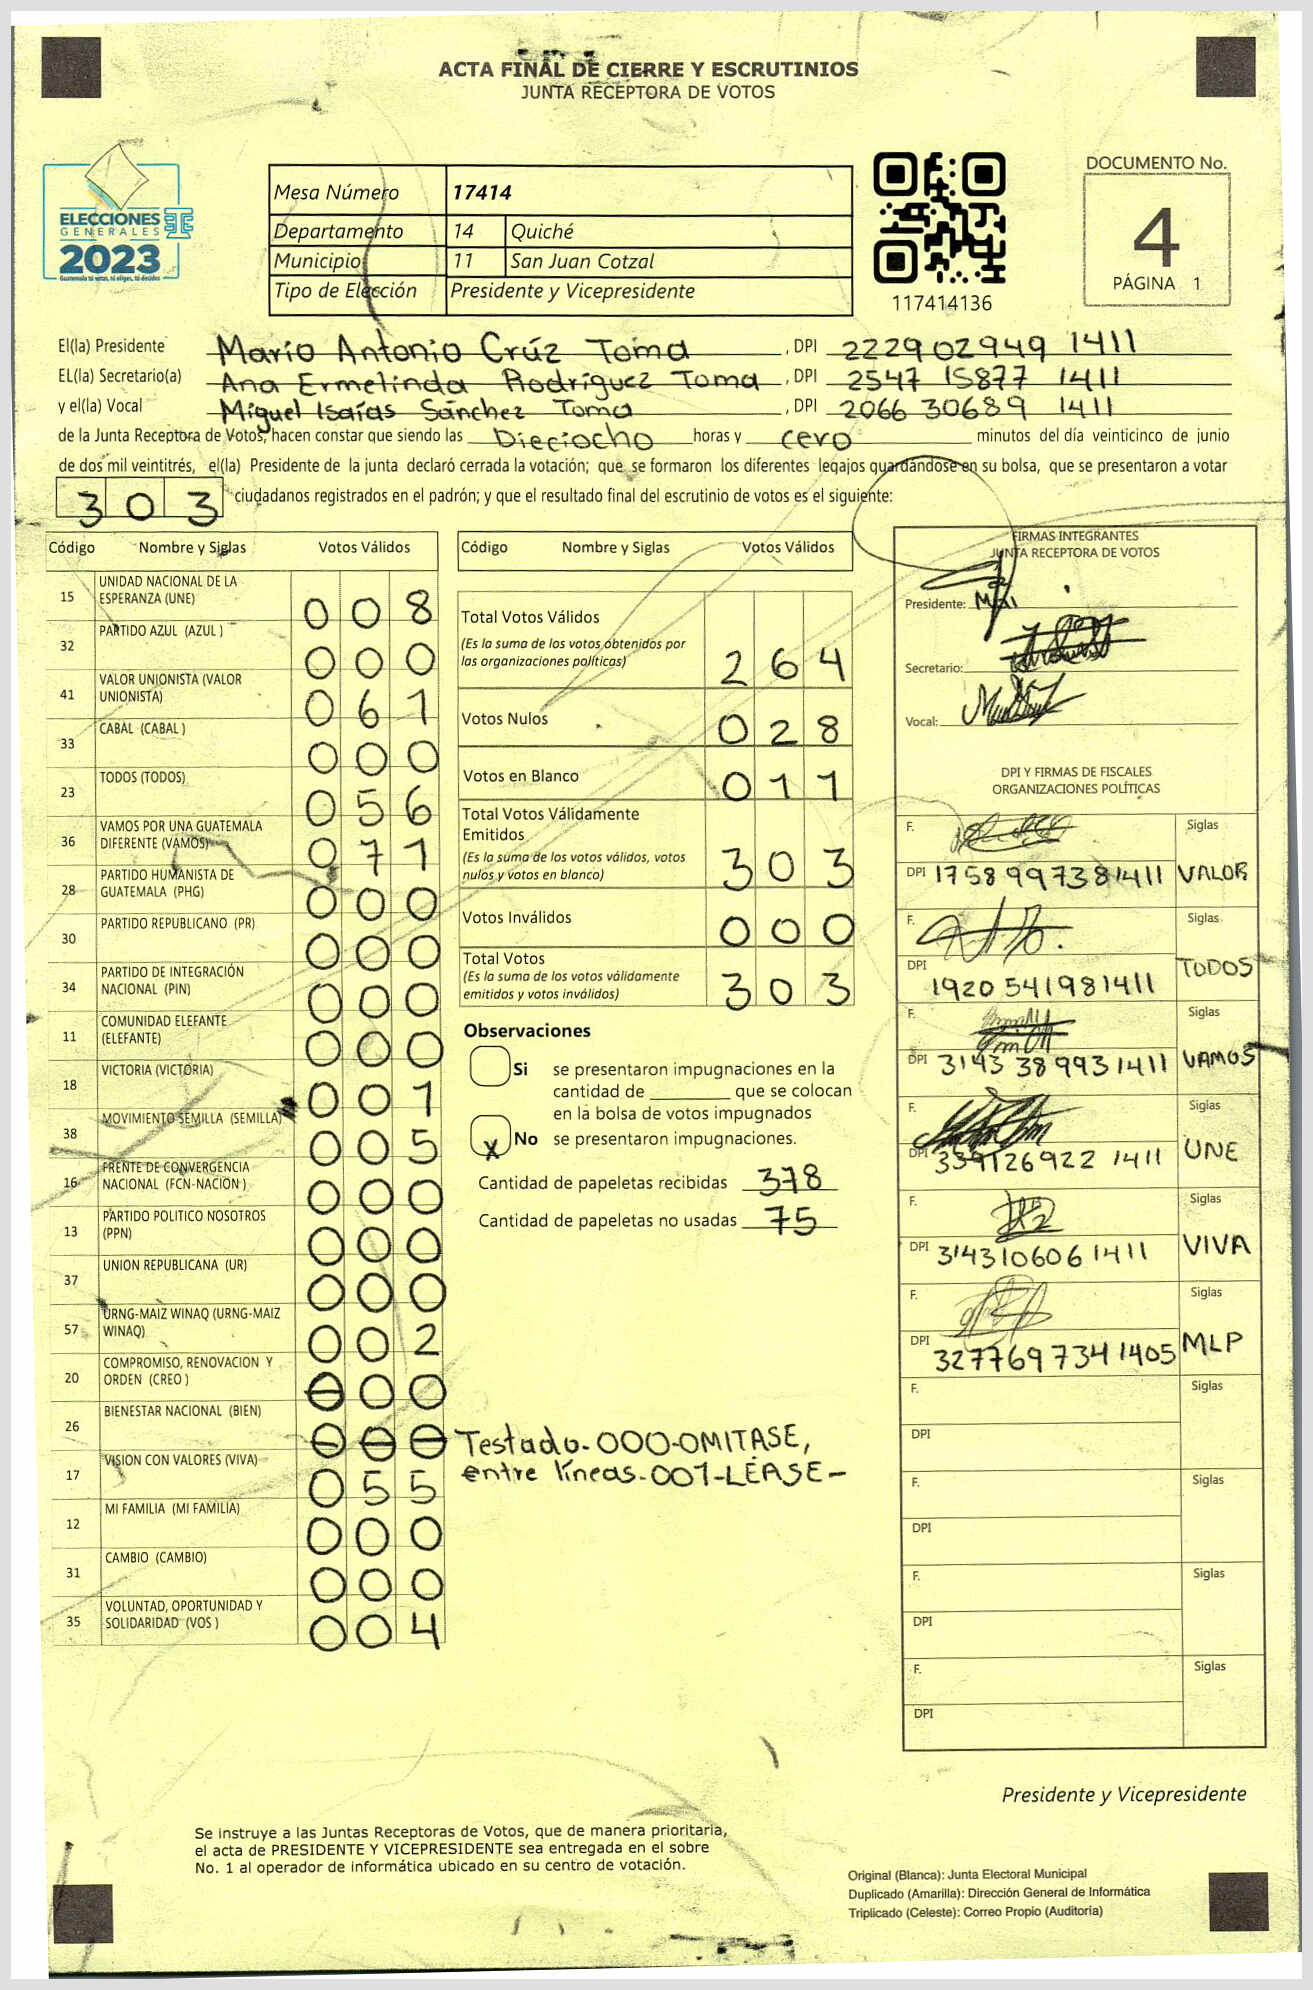 ACTA FINAL DE CIERRE Y ESCRUTINIOS
JUNTA RECEPTORA DE VOTOS
ELECCIONES
GENERALES
2023
Guatemala tú votas, tú eliges, tú decides
Mesa Número 17414
Departamento 14 Quiché
Municipio 11 San Juan Cotzal
Tipo de Elección Presidente y Vicepresidente
117414136
DOCUMENTO No.
4
PÁGINA 1
El(la) Presidente Mario Antonio Crúz Toma, DPI 222902949 1411
EL(la) Secretario(a) Ana Ermelinda Rodríguez Toma, DPI 2547 15877 1411
y el(la) Vocal Miguel Isaías Sánchez Toma, DPI 2066 30689 1411
de la Junta Receptora de Votos, hacen constar que siendo las Dieciocho horas y cero minutos del día veinticinco de junio
de dos mil veintitrés, el(la) Presidente de la junta declaró cerrada la votación; que se formaron los diferentes legajos guardándose en su bolsa, que se presentaron a votar
303 ciudadanos registrados en el padrón; y que el resultado final del escrutinio de votos es el siguiente:
Código Nombre y Siglas Votos Válidos
15 UNIDAD NACIONAL DE LA ESPERANZA (UNE) 008
32 PARTIDO AZUL (AZUL ) 000
41 VALOR UNIONISTA (VALOR UNIONISTA) 061
33 CABAL (CABAL ) 000
23 TODOS (TODOS) 056
36 VAMOS POR UNA GUATEMALA DIFERENTE (VAMOS) 071
28 PARTIDO HUMANISTA DE GUATEMALA (PHG) 000
30 PARTIDO REPUBLICANO (PR) 000
34 PARTIDO DE INTEGRACIÓN NACIONAL (PIN) 000
11 COMUNIDAD ELEFANTE (ELEFANTE) 000
18 VICTORIA (VICTORIA) 001
38 MOVIMIENTO SEMILLA (SEMILLA) 005
16 FRENTE DE CONVERGENCIA NACIONAL (FCN-NACION ) 000
13 PARTIDO POLITICO NOSOTROS (PPN) 000
37 UNION REPUBLICANA (UR) 000
57 URNG-MAIZ WINAQ (URNG-MAIZ WINAQ) 002
20 COMPROMISO, RENOVACION Y ORDEN (CREO ) 000
26 BIENESTAR NACIONAL (BIEN) 000
17 VISION CON VALORES (VIVA) 055
12 MI FAMILIA (MI FAMILIA) 000
31 CAMBIO (CAMBIO) 000
35 VOLUNTAD, OPORTUNIDAD Y SOLIDARIDAD (VOS ) 004
Código Nombre y Siglas Votos Válidos
Total Votos Válidos
(Es la suma de los votos obtenidos por
las organizaciones políticas) 264
Votos Nulos 028
Votos en Blanco 011
Total Votos Válidamente
Emitidos
(Es la suma de los votos válidos, votos
nulos y votos en blanco) 303
Votos Inválidos 000
Total Votos
(Es la suma de los votos válidamente
emitidos y votos inválidos) 303
Observaciones
Si se presentaron impugnaciones en la
cantidad de ________ que se colocan
en la bolsa de votos impugnados
X No se presentaron impugnaciones.
Cantidad de papeletas recibidas 378
Cantidad de papeletas no usadas 75
Testado-000-OMITASE,
entre líneas-001-LÉASE-
FIRMAS INTEGRANTES
JUNTA RECEPTORA DE VOTOS
Presidente:
Secretario:
Vocal:
DPI Y FIRMAS DE FISCALES
ORGANIZACIONES POLÍTICAS
F. Siglas
DPI 1758 997381411 VALOR
F. Siglas
DPI 1920 541981411 TODOS
F. Siglas
DPI 3143 38 9931411 VAMOS
F. Siglas
DPI 339126922 1411 UNE
F. Siglas
DPI 314310606 1411 VIVA
F. Siglas
DPI 327769734 1405 MLP
F. Siglas
DPI
F. Siglas
DPI
F. Siglas
DPI
F. Siglas
DPI
Presidente y Vicepresidente
Se instruye a las Juntas Receptoras de Votos, que de manera prioritaria,
el acta de PRESIDENTE Y VICEPRESIDENTE sea entregada en el sobre
No. 1 al operador de informática ubicado en su centro de votación.
Original (Blanca): Junta Electoral Municipal
Duplicado (Amarilla): Dirección General de Informática
Triplicado (Celeste): Correo Propio (Auditoría)